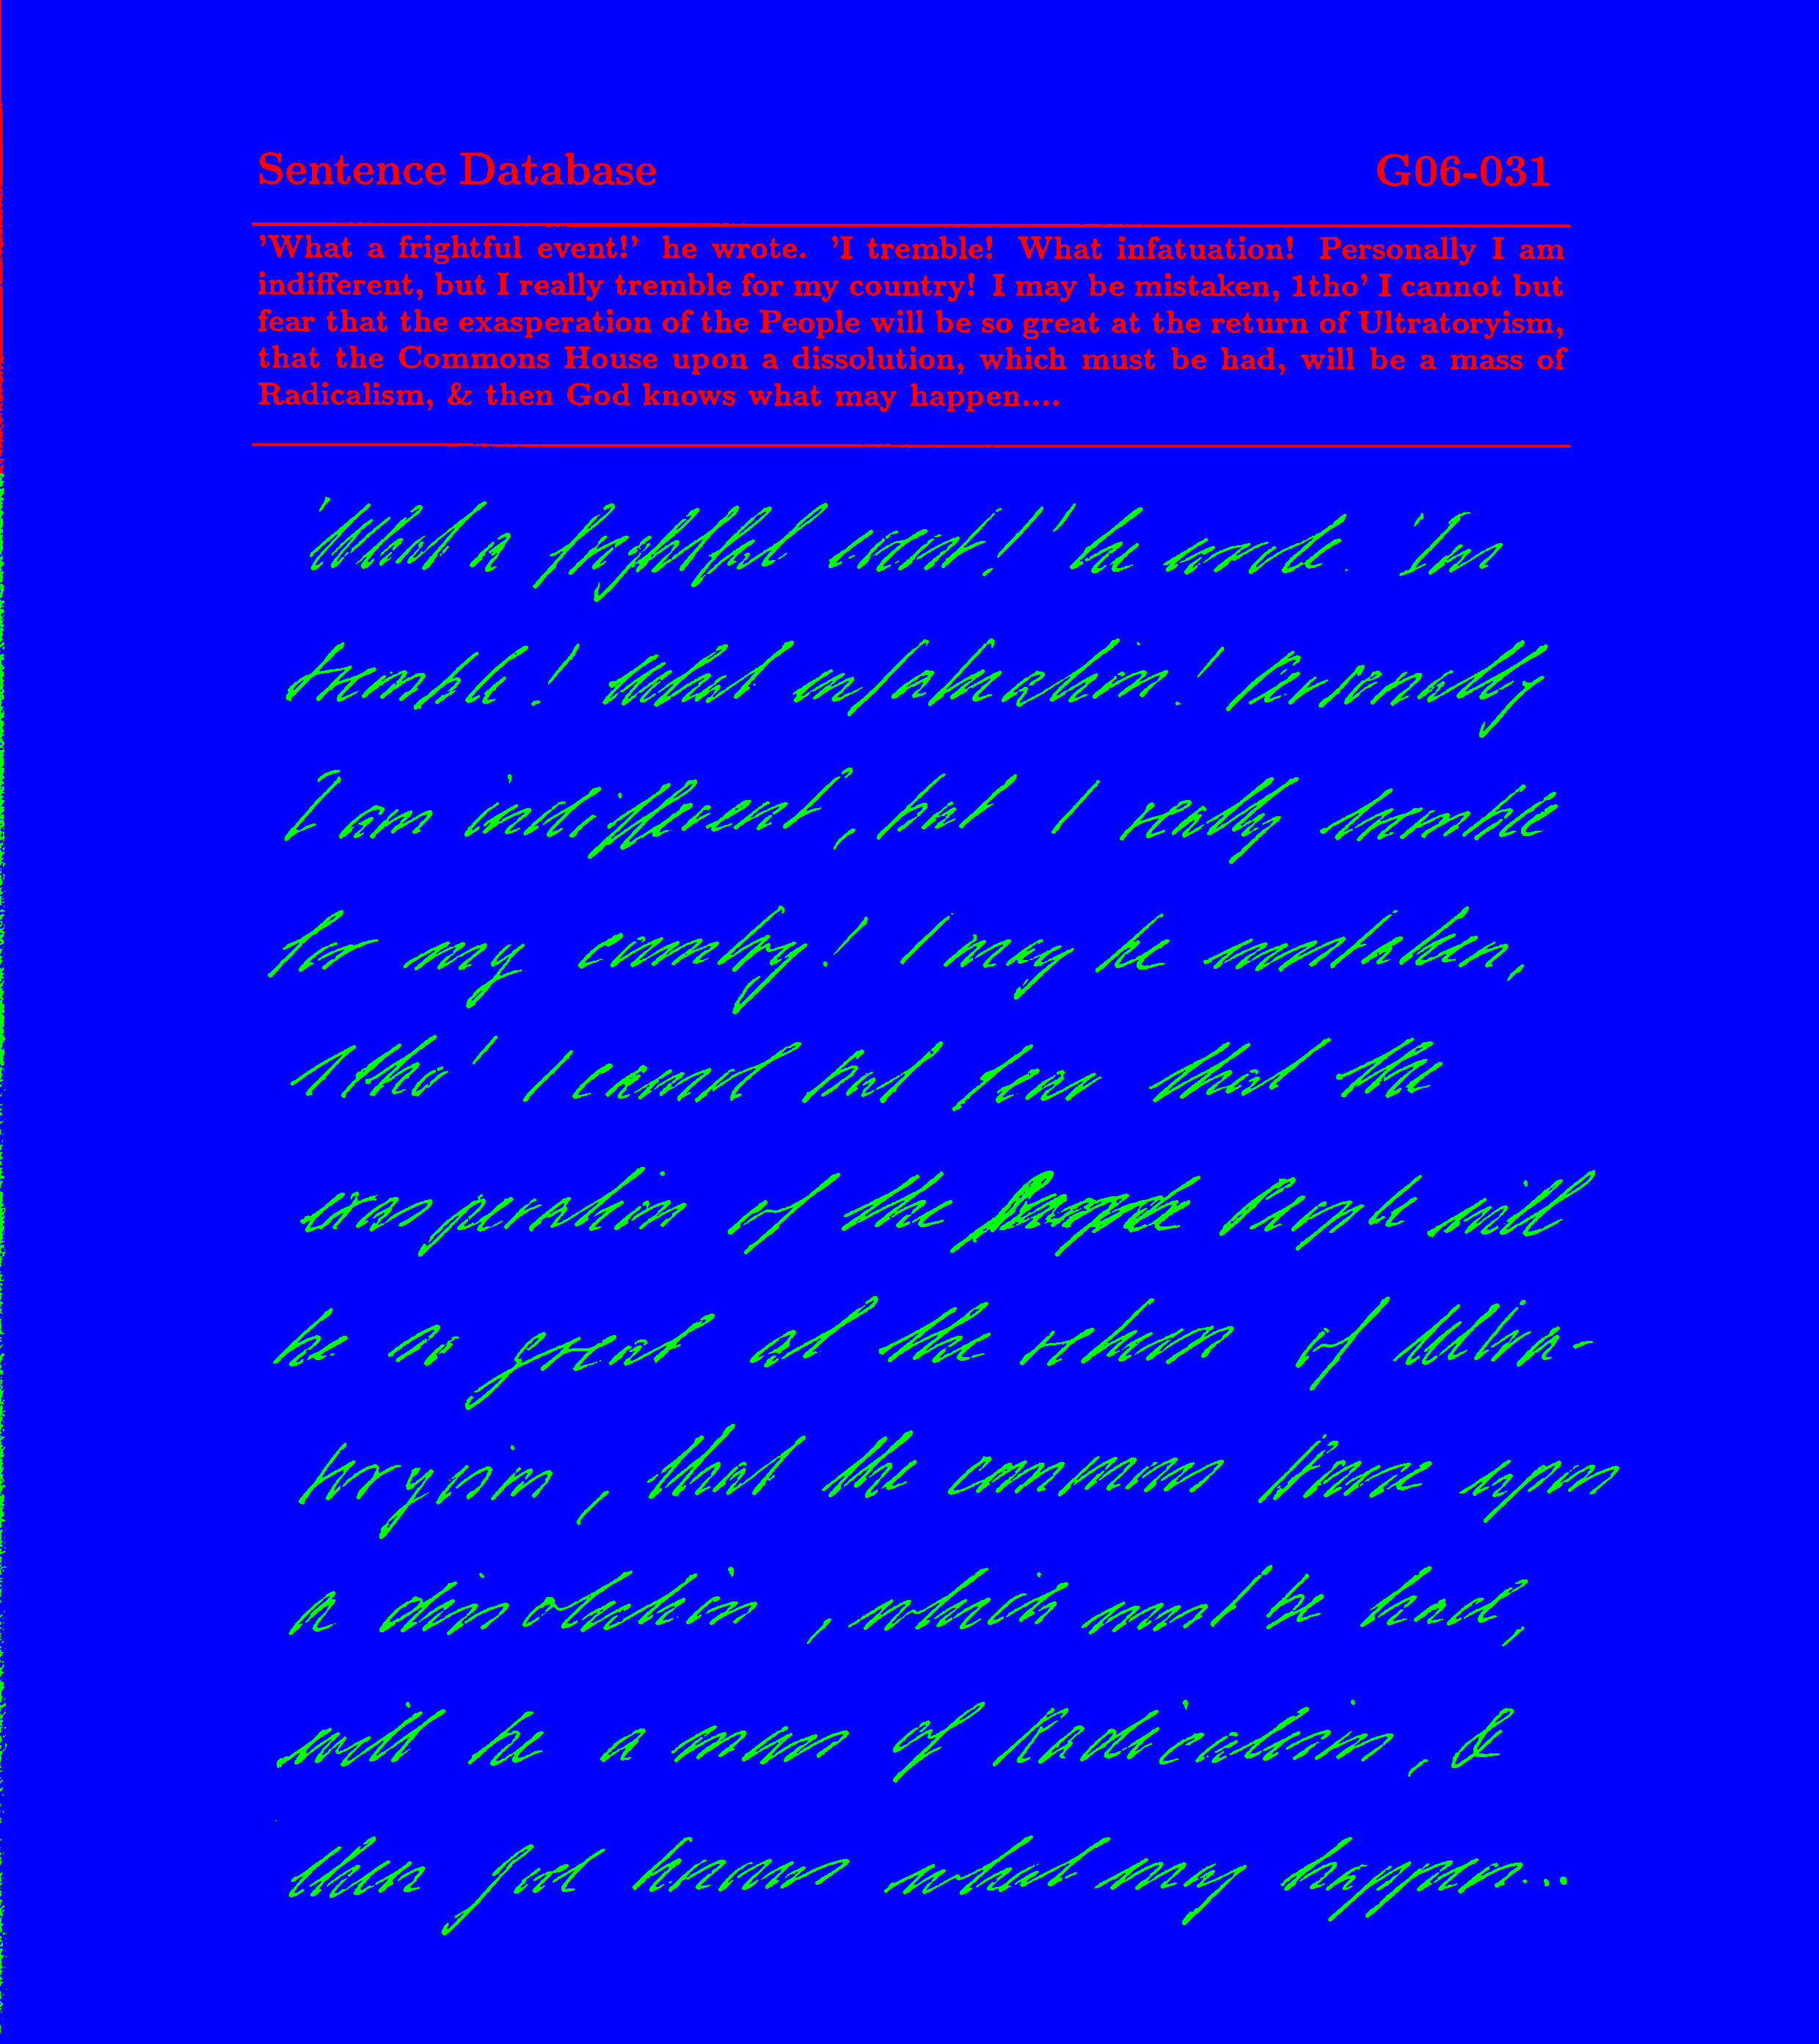 Sentence Database G06-031
'What a frightful event!' he wrote. 'I tremble! What infatuation! Personally I am
indifferent, but I really tremble for my country! I may be mistaken, 1tho' I cannot but
fear that the exasperation of the People will be so great at the return of Ultratoryism,
that the Commons House upon a dissolution, which must be had, will be a mass of
Radicalism, & then God knows what may happen....
'What a frightful event!' he wrote. 'I'm
tremble! What infatuation! Personally
I am indifferent, but I really tremble
for my country! I may be mistaken,
1tho' I cannot but fear that the
exasperation of the People will
be so great at the return of Ultra-
toryism, that the commons House upon
a dissolution, which must be had,
will be a mass of Radicalism, &
then God knows what may happen...